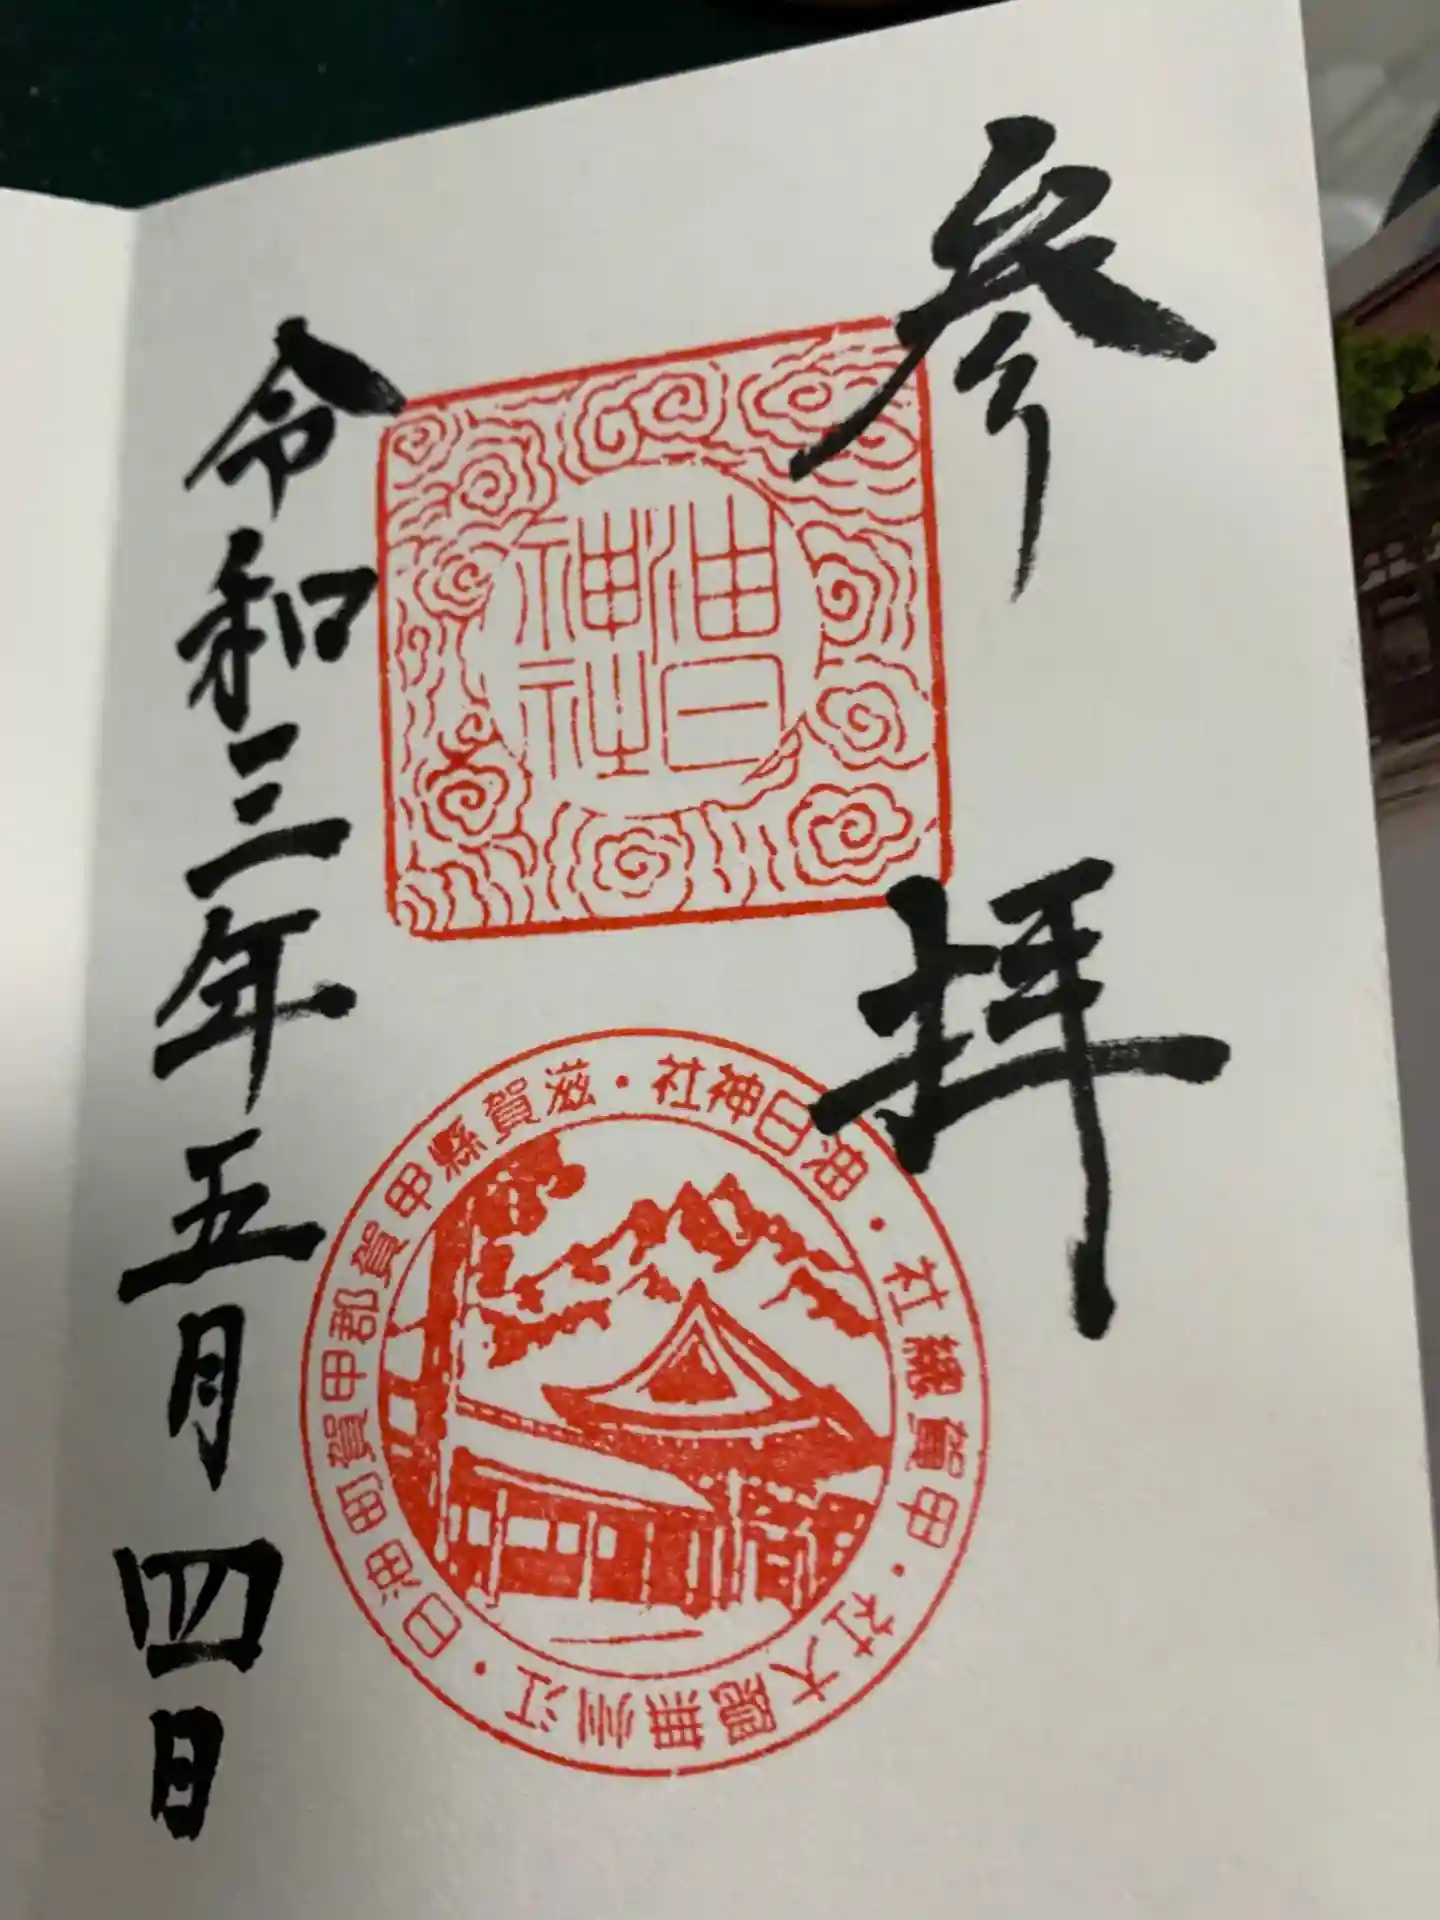 参拝
油日
神社
油日神社・滋賀縣甲賀郡甲賀町油日・江州無隠大社・甲賀總社・
令和三年五月四日